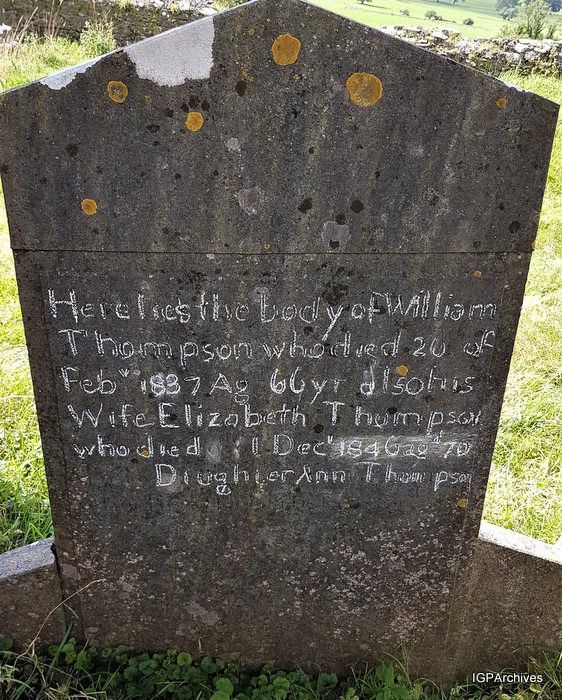 Here lies the body of William
Thompson who died 20 of
Feby 1837 Ag 66 yr also his
Wife Elizabeth Thompson
who died 1 Decr 1846 agd 70
Diughier Ann Thompson
IGPArchives